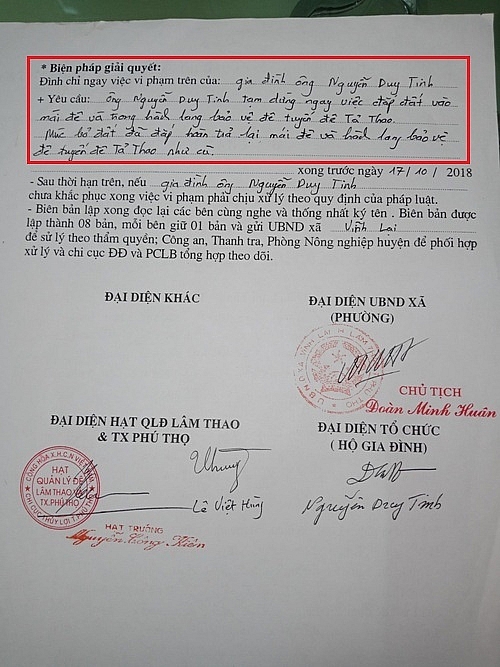 * Biện pháp giải quyết:
Đình chỉ ngay việc vi phạm trên của: gia đình ông Nguyễn Duy Tinh
+ Yêu cầu: ông Nguyễn Duy Tinh tạm dừng ngay việc đắp đất vào
mái đê và trong hành lang bảo vệ đê tuyến đê Tả Thao.
Múc bỏ đất đã đắp hoàn trả lại mái đê và hành lang bảo vệ
đê tuyến đê Tả Thao như cũ.
xong trước ngày 17/10/2018
- Sau thời hạn trên, nếu gia đình ông Nguyễn Duy Tinh
chưa khắc phục xong việc vi phạm phải chịu xử lý theo quy định của pháp luật.
- Biên bản lập xong đọc lại các bên cùng nghe và thống nhất ký tên. Biên bản được
lập thành 08 bản, mỗi bên giữ 01 bản và gửi UBND xã Vĩnh Lại
để xử lý theo thẩm quyền; Công an, Thanh tra, Phòng Nông nghiệp huyện để phối hợp
xử lý và chi cục ĐĐ và PCLB tổng hợp theo dõi.
ĐẠI DIỆN KHÁC
ĐẠI DIỆN UBND XÃ
(PHƯỜNG)
CHỦ TỊCH
Đoàn Minh Huân
ĐẠI DIỆN HẠT QLĐ LÂM THAO
& TX PHÚ THỌ
ĐẠI DIỆN TỔ CHỨC
( HỘ GIA ĐÌNH)
CỘNG HÒA X.H.C.N VIỆT NAM
HẠT
QUẢN LÝ ĐÊ
LÂM THAO
TX.PHÚ THỌ
CHI CỤC THỦY LỢI T.PHÚ THỌ
Lê Việt Hùng
Nguyễn Duy Tinh
HẠT TRƯỞNG
Nguyễn Công Kiên